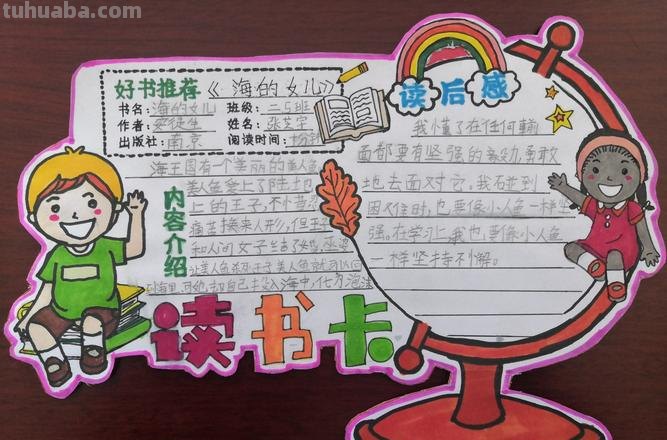 tuhuaba.com
好书推荐《海的女儿》
书名：海的女儿 班级：二5班
作者：安徒生 姓名：张芝宇
出版社：南京 阅读时间：十分钟
内容介绍
海王国有一个美丽的美人鱼
美人鱼爱上了陆地
上的王子，不小
痛苦换来人形，但王子
和人间女子结了婚，巫婆
让美人鱼杀死王子美人鱼就可以回
到海里，可她，却自己投入海中，化为泡沫
读后感
我懂了在任何
面都要有坚强的 勇敢
地去面对它。我碰到
困难时，也要像小人鱼一样坚
强。在学习上我也要像小人鱼
一样坚持不懈。
读书卡